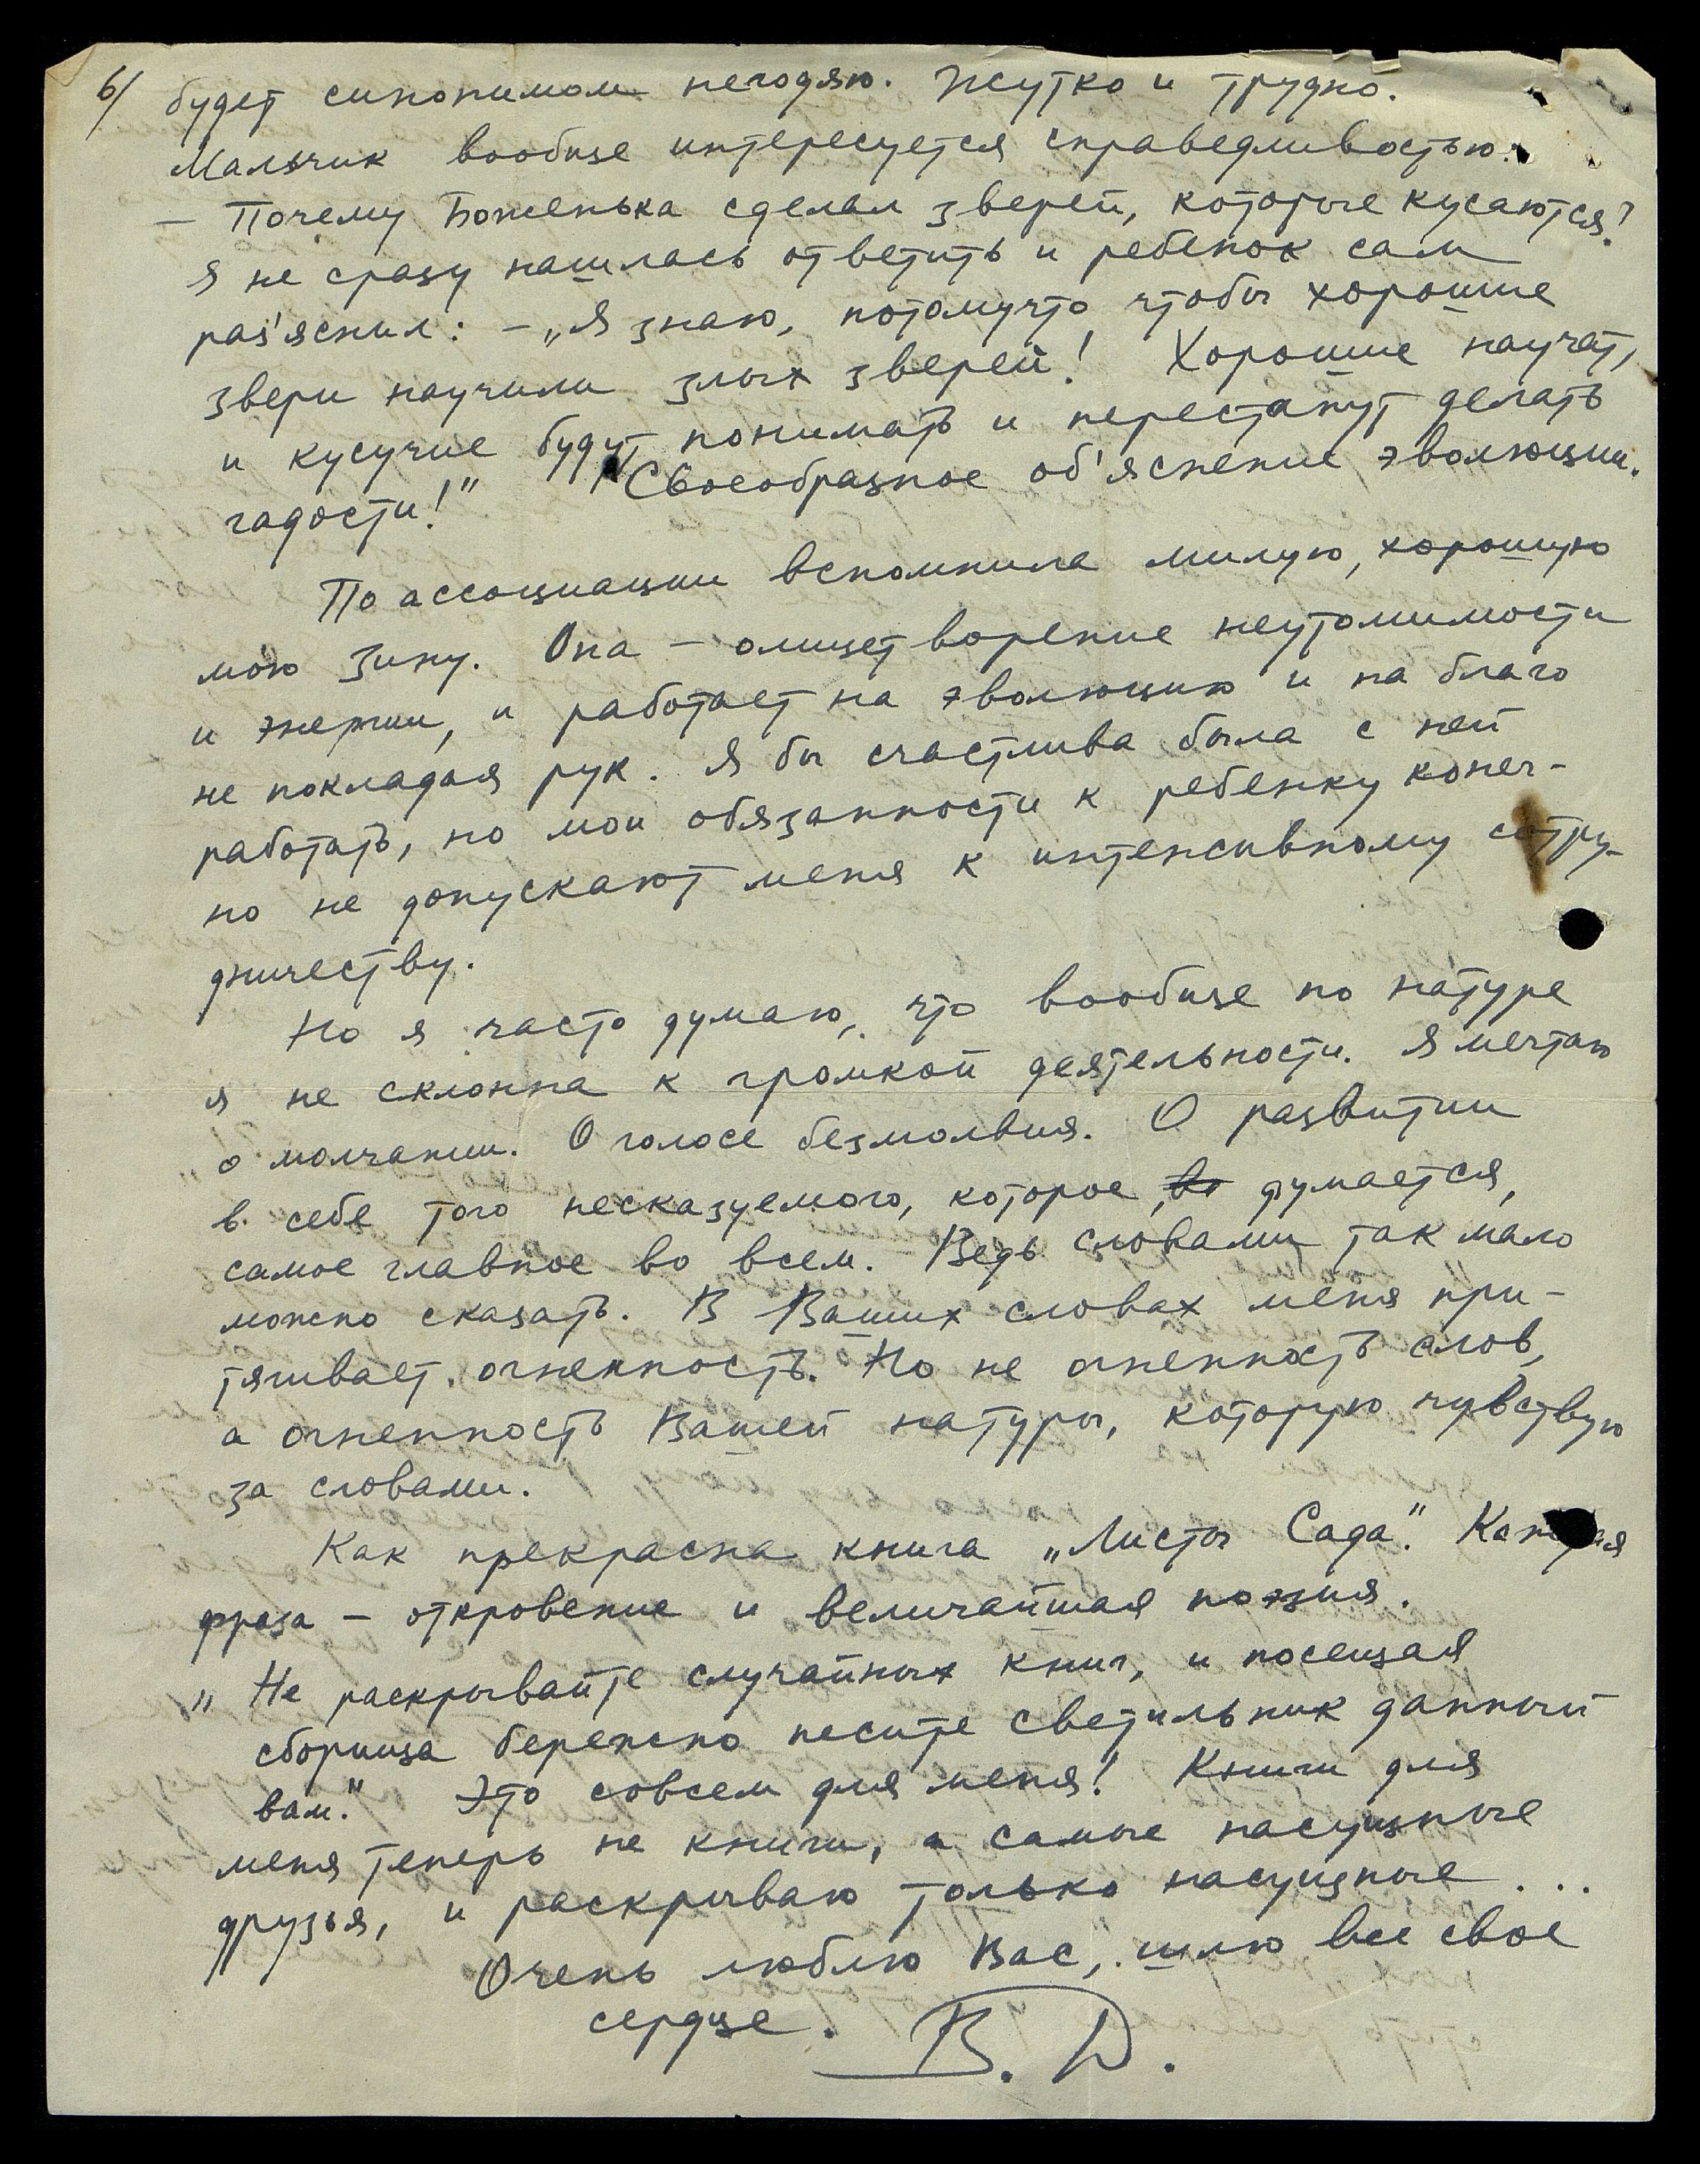 6/ будет синонимом негодяю. Жутко и трудно.
Мальчик вообще интересуется справедливостью.
— Почему Боженька сделал зверей, которые кусаются?
Я не сразу нашлась ответить и ребенок сам
раз'яснил: — „Я знаю, потомучто чтобы хорошие
звери научили злых зверей! Хорошие научат,
и кусучие будут понимать и перестанут делать
гадости!" Своеобразное об'яснение эволюции.
По ассоциации вспомнила милую, хорошую
мою Зину. Она — олицетворение неутомимости
и энергии, и работает на эволюцию и на благо
не покладая рук. Я бы счастлива была с ней
работать, но мои обязанности к ребенку конеч-
но не допускают меня к интенсивному сотру-
дничеству.
Но я часто думаю, что вообще по натуре
я не склонна к громкой деятельности. Я мечтаю
о молчании. О голосе безмолвия. О развитии
в себе того несказуемого, которое, думается,
самое главное во всем. Ведь словами так мало
можно сказать. В Ваших словах меня при-
тягивает огненность. Но не огненность слов,
а огненность Вашей натуры, которую чувствую
за словами.
Как прекрасна книга „Листы Сада". Каждая
фраза — откровение и величайшая поэзия.
„Не раскрывайте случайных книг, и посещая
сборища бережно несите светильник данный
вам." Это совсем для меня! Книги для
меня теперь не книги, а самые насущные
друзья, и раскрываю только насущные ...
Очень люблю Вас, шлю все свое
сердце. В. Д.